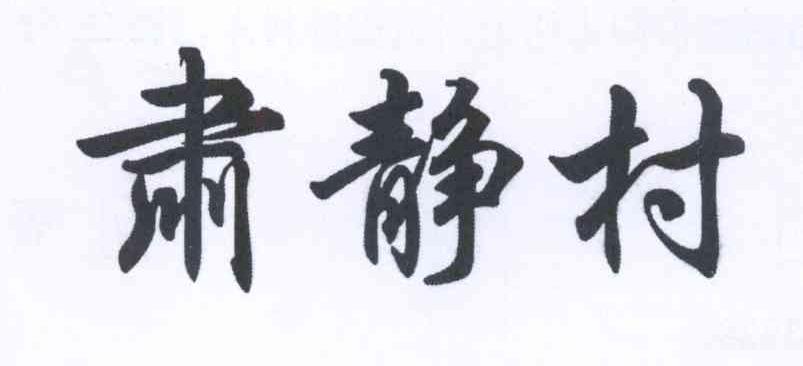 肃静村